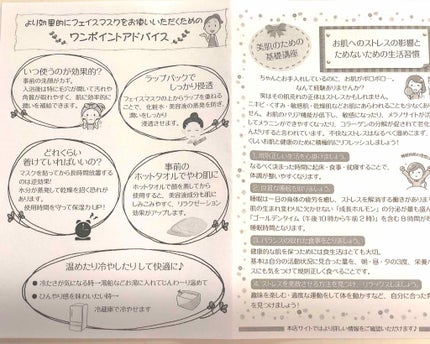 より効果的にフェイスマスクをお使いいただくための
ワンポイントアドバイス
いつ使うのが効果的?
事前の洗顔がカギ。
入浴後は特に毛穴が開いて汚れや
角質が取れやすく、肌に効率的に
潤いを補給できます。
ラップパックで
しっかり浸透
フェイスマスクの上からラップを重ねる
ことで、化粧水・美容液の蒸発を防ぎ、
潤いをしっかり
浸透させます。
どれくらい
着けていればいいの?
マスクを貼ってから長時間放置する
のは逆効果!
水分が蒸発して乾燥を招く恐れが
あります。
使用時間を守って保湿力UP!
事前の
ホットタオルでやわ肌に
ホットタオルで顔を蒸してから
使用すると、美容液成分も肌に
しみこみやすく、リラクゼーション
効果がアップします。
温めたり冷やしたりして快適に♪
● 冷たさが気になる時→湯船などお湯に入れてじんわり温めて
● ひんやり感を味わいたい時→
冷蔵庫で冷やせます
美肌のための
基礎講座
お肌へのストレスの影響と
ためないための生活習慣
ちゃんとお手入れしているのに、お肌がボロボロ…
なんて経験ありませんか?
実はその肌荒れの正体はストレスかもしれません。
ニキビ・くすみ・敏感肌・乾燥肌などお肌にあらわれることも少なくありま
せん。お肌のバリア機能が低下し、敏感になったり、メラノサイトが活
してメラニンができやすくなったり、コラーゲンの分解が促されて老化
んだりすると言われています。不快なストレスはなるべく溜めこまず、
くいお肌と健康のために積極的にリフレッシュしましょう!
1. 規則正しい生活を心掛けましょう。
なるべく決まった時間に起床・食事・就寝することで、
体調が整いやすくなります。
2. 良質な睡眠を取りましょう。
睡眠は一日の身体の疲労を癒し、ストレスを解消するために大切
肌の生まれ変わりに欠かせない「成長ホルモン」の分泌が最も盛ん
「ゴールデンタイム(午後10時から午前2時)」を含む8時間が
睡眠時間となります。
3. バランスの取れた食事をとりましょう。
健康的な肌を保つためには食生活はとても大切。
基本は自分の活動状況に見合った量を、朝・昼・夕の3度、栄養
スにも気をつけて規則正しく食べることです。
4. ストレスを発散させる方法を見つけ、リラックスしましょう。
趣味を楽しむ・適度な運動をして体を動かすなど、自分に合った
を見つけましょう!
■ 本店サイトではより詳しい情報をご確認いただけます♪